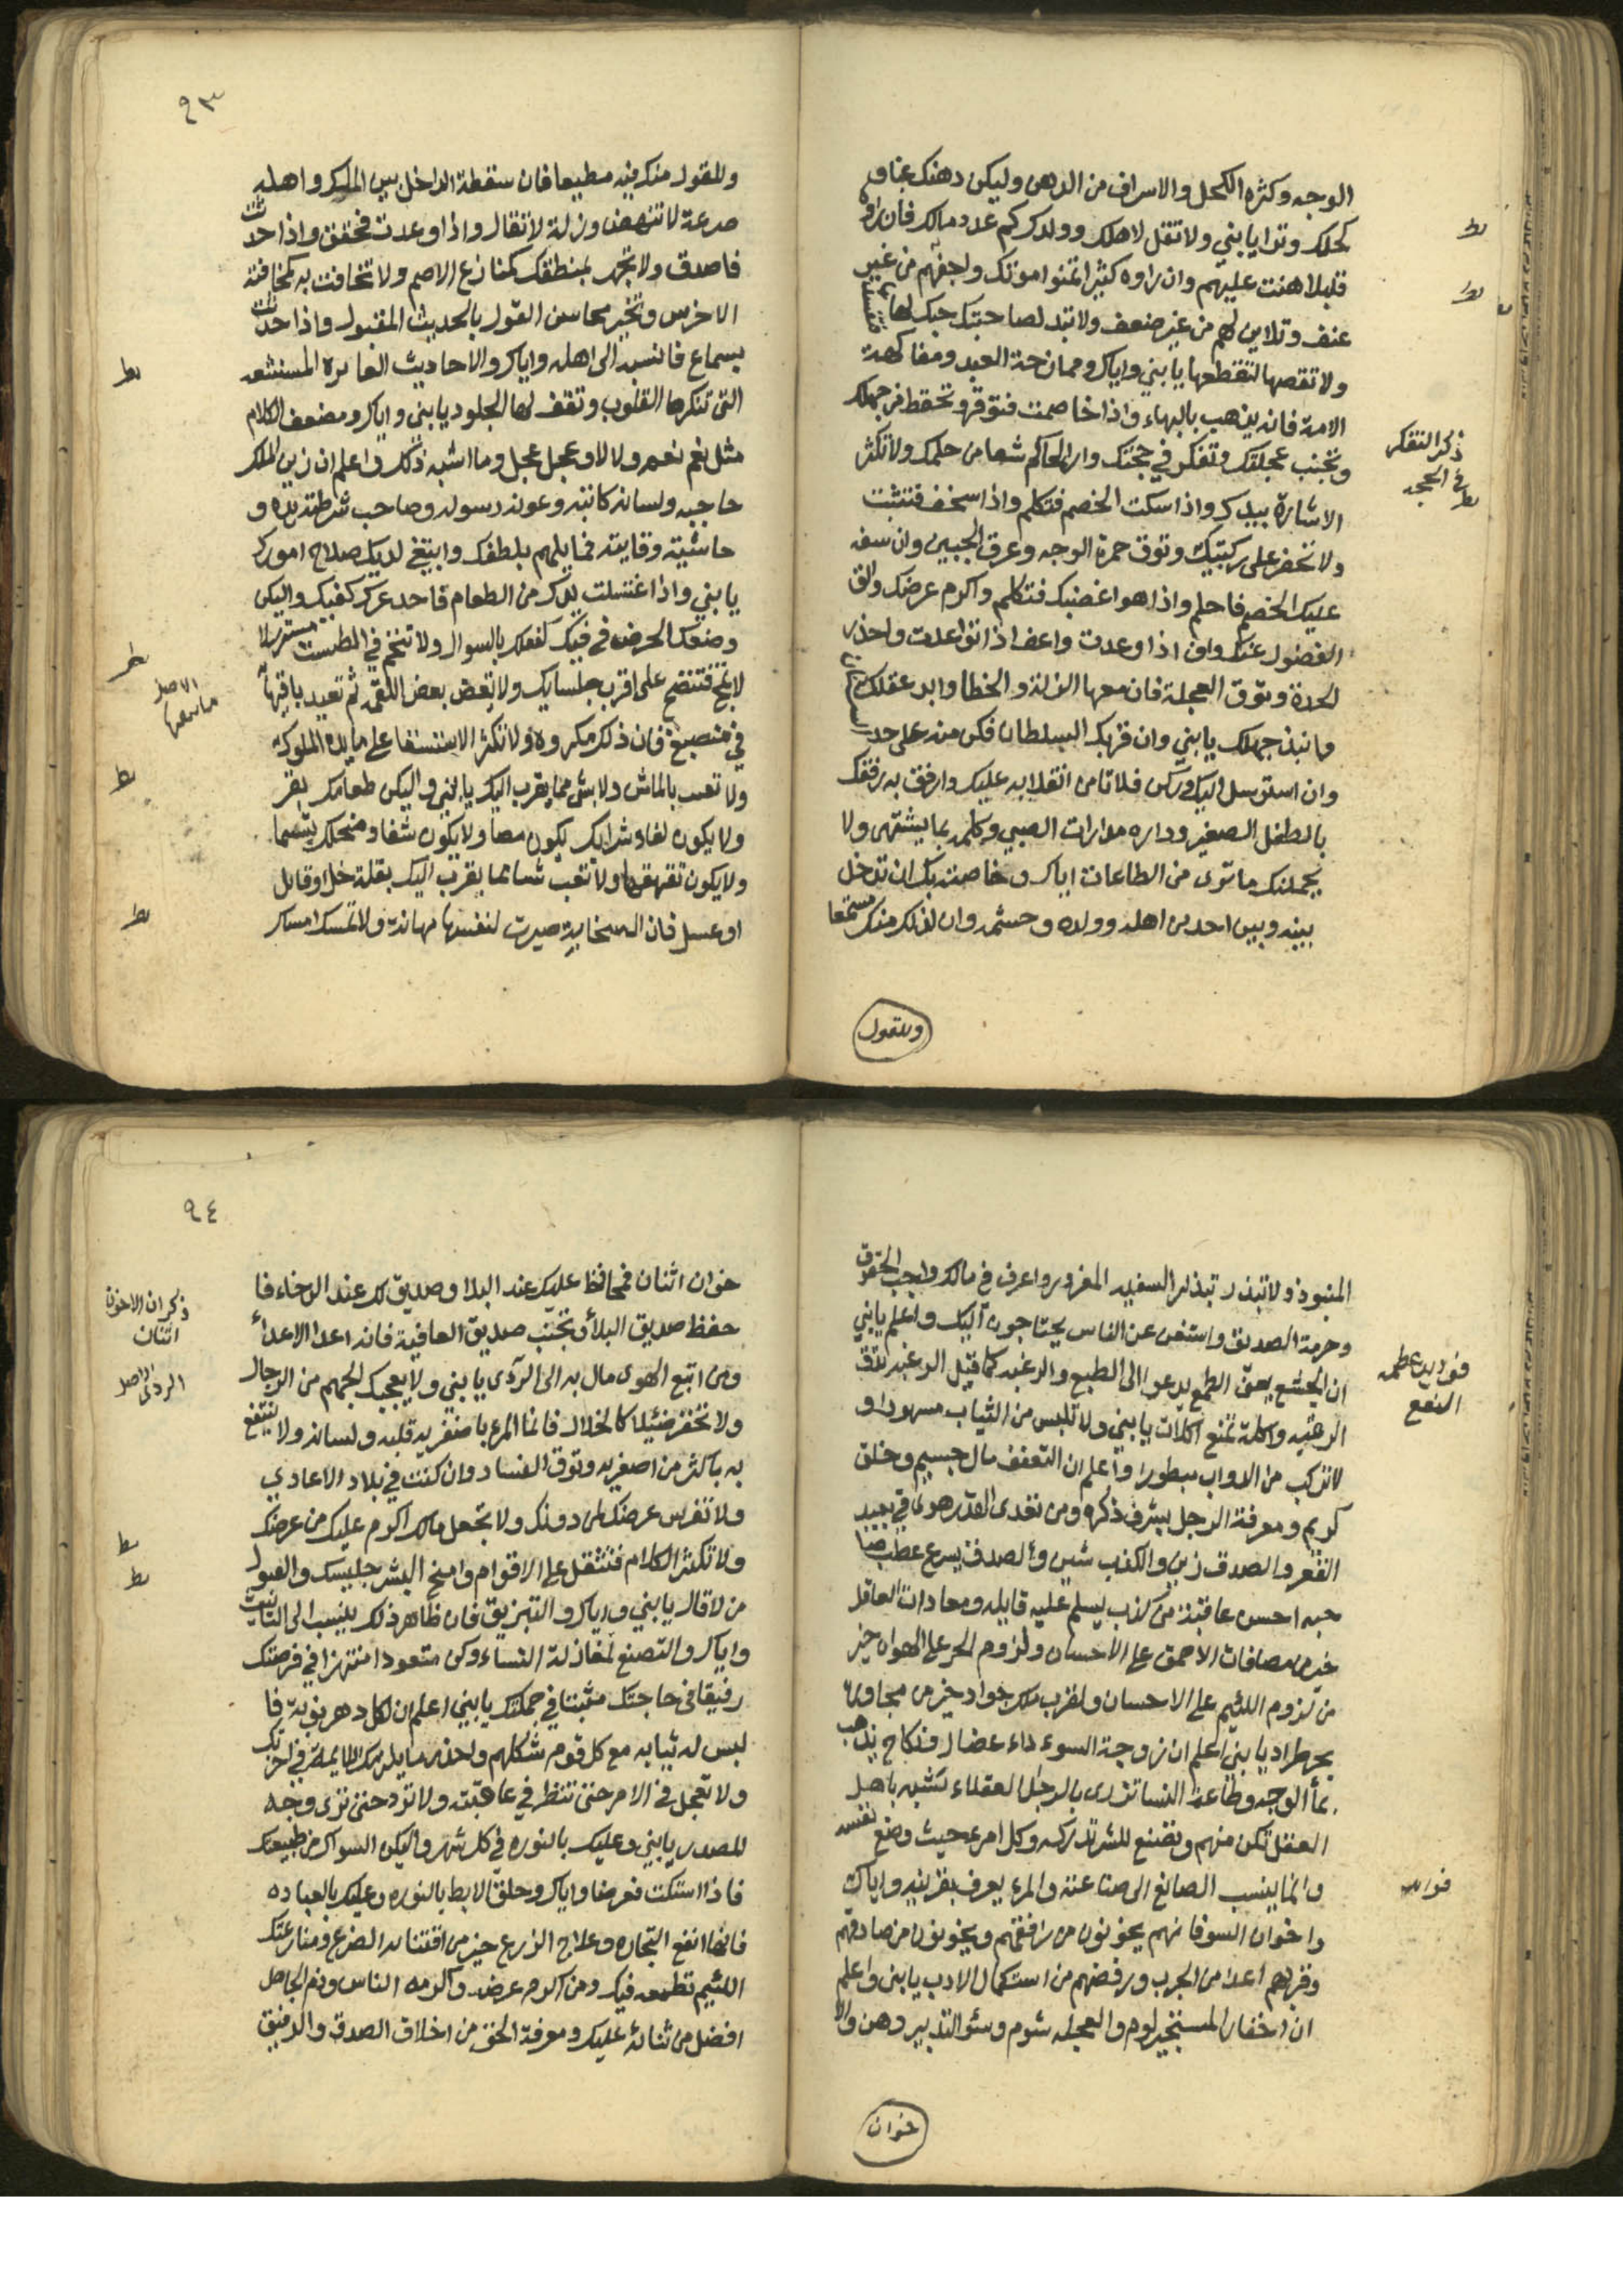 الوجه وكثرة الكحل والاسراف من الدهن وليكن دهنك غبا و
كحلك وترا يا بني ولا تقل لاهلك وولدك كم عدد مالك فان راوه
قليلا هنت عليهم وان راوه كثيرا تمنوا موتك واجفهم من غير
عنف وتلاين لهم من غير ضعف ولا تبد لصاحبتك حبك لها
ولا تقصها لتقطعها يا بني واياك وممازحة العبد ومفاكهة
الامة فانه يذهب بالبهاء واذا خاصمت فتوقر وتحفظ من جهلك
وتجنب عجلتك وتفكر في حجتك وار الحاكم شيا من حلمك ولا تكثر
الاشارة بيدك واذا سكت الخصم فتكلم واذا سخف فتثبت
ولا تحفز على ركبتيك وتوق حمرة الوجه وعرق الجبين وان سفه
عليك الخصم فاحلم واذا هو اغضبك فتكلم واكرم عرضك والق
الفضول عنك واف اذا وعدت واعف اذا توعدت واحذر
الحدة وتوق العجلة فان معها الزلة والخطا وابد عقلك
وانبذ جهلك يا بني وان قربك السلطان فكن منه على حد
وان استرسل اليك وركن فلا تامن انقلابه عليك وارفق به رفقك
بالطفل الصغير وداره مدارات الصبي وكلمه بما يشتهي ولا
يحملنك ما ترى من الطاعات اياك وخاصته بك ان تدخل
بينه وبين احد من اهله وولده وحشمه وان لذلك منك مستمعا
وللقول
ذكر التفكر
في الحجه
٩٣
وللقول منك فيه مطيعا فان سقطة الداخل بين الملك واهله
صرعة لا تنهض وزلة لا تقال واذا وعدت فحقق واذا حدثت
فاصدق ولا تجهر بمنطقك كمنازع الاصم ولا تخافت به كمخافتة
الاخرس وتخير محاسن القول بالحديث المقبول واذا حدثت
بسماع فانسبه الى اهله واياك والاحاديث الغابرة المستشعه
التى تنكرها القلوب وتقف لها الجلود يا بنى واياك ومضعف الكلام
مثل نعم نعم ولا لا وعجل عجل وما اشبه ذلك واعلم ان زين الملك
حاجبه ولسانه كاتبه وعونه رسوله وصاحب شرطته يده و
حاشيته وقايته فخايلهم بلطفك وابتغي لديك صلاح امورك
يا بني واذا غتسلت يدك من الطعام فاحد عرك كفيك واليكن
وضعك الحرض في فيك كفعلك بالسواك ولا تتخم في الطست مسترسلا
لا تمج فتنضح على اقرب جلسايك ولا تعض بعض اللقمه ثم تعيد باقيها
في منصبغ فان ذلك مكروه ولا تكثر الاستسقا على مايده الملوك
ولا تعب بالماش ولا بشى مما يقرب اليك يا بني واليكن طعامك بقر
ولا يكون لغاد شرابك يكون مصا ولا يكون شفا وضحكك تبسما
ولا يكون تقهقها ولا تعب شيا مما يقرب اليك بقلة خل او قابل
او عسل فان السحابة صيرت لنفسها مهانة ولا تمسك امساك
الاصل
ما بينها
المنبوذ ولا تبذر تبذير السفيه المغرور واعرف في مالك واجب الحقوق
وحرمة الصديق واستغن عن الناس يحتاجون اليك واعلم يا بني
ان الجشع يعق الطمع يدعوا الى الطبع والرغبه كما قيل الرغبه تدق
الرقبه واكلة تمنع اكلات يا بني ولا تلبس من الثياب مسهودا و
لا تركب من الدواب مبطورا واعلم ان التعفف مال جسيم وخلق
كريم ومعرفة الرجل يشرف ذكره ومن تعدى القدر هوى في بعيد
القعر والصدق زين والكذب شين والصدق يسرع عطب صا
حبه احسن عاقبة من كذب يسلم عليه قايله ومعادات العاقل
خير من مصافات الاحمق على الاحسان ولزوم الحر على الهوان خير
من لزوم اللئيم على الاحسان ولقرب ملك جواد خير من مجاورة
بحر طراد يا بني اعلم ان زوجة السوء داء عضال ونكاح يذهب
بما الوجه وطاعة النسا تزرى بالرجل العقلاء تشبه باهل
العقل تكن منهم وتصنع للشر تدركه وكل امرء حيث وضع نفسه
وانما ينسب الصانع الى صناعته والمرء يعرف بقرينه واياك
واخوان السوفانهم يخونون من رافقهم ويخونون من صادقهم
وقربهم اعدا من الجرب ورفضهم من استكمال الادب يا بنى واعلم
ان اخفار المستجير لوم والعجله شوم وسئو التدبير وهن والا
خوان
٩٤
خوان اثنان فمحافظ عليك عند البلا وصديق لك عند الرخاء فا
حفظ صديق البلاء وتجنب صديق العافية فانه اعدا الاعداء
ومن اتبع الهوى مال به الى الردى يا بني ولا يعجبك الجهم من الرجال
ولا تحقر ضئيلا كالخلال فانما المرء باصغريه قلبه ولسانه ولا ينتفع
به باكثر من اصغريه وتوق الفساد وان كنت في بلاد الاعادي
ولا تفرس عرضك لمن دونك ولا تجعل مالك اكرم عليك من عرضك
ولا تكثر الكلام فتثقل على الاقوام وامنح البشر جليسك والقبول
من لاقاك يا بني واياك والتبزيق فان ظاهر ذلك ينسب الى التانيث
واياك والتصنع لمغازلة النساء وكن متعودا منتهزا في فرصتك
رفيقا في حاجتك مثبتا في حملتك يا بني اعلم ان لكل دهر نوبة فا
لبس له ثيابه مع كل قوم شكلهم واحذر ما يلزمك اللايمة في اخرتك
ولا تعجل في الامر حتى تنظر في عاقبته ولا ترد حتى ترى وجه
المصدر يا بني وعليك بالنوره في كل شهر واليكن السواك من طبيعتك
فاذا استكت فعرضا واياك وحلق الابط بالنوره وعليك بالعباده
فانها انفع التجاره وعلاج الزرع خير من اقتنا الضرع ومنازعتك
اللئيم تطمعه فيك ومن اكرم عرضه واكرمه الناس وذم الجاهل
افضل من ثنائه عليك ومعرفة الحق من اخلاق الصدق والرفيق
ذكر ان الاخوان
اثنان
الاصل
الردى